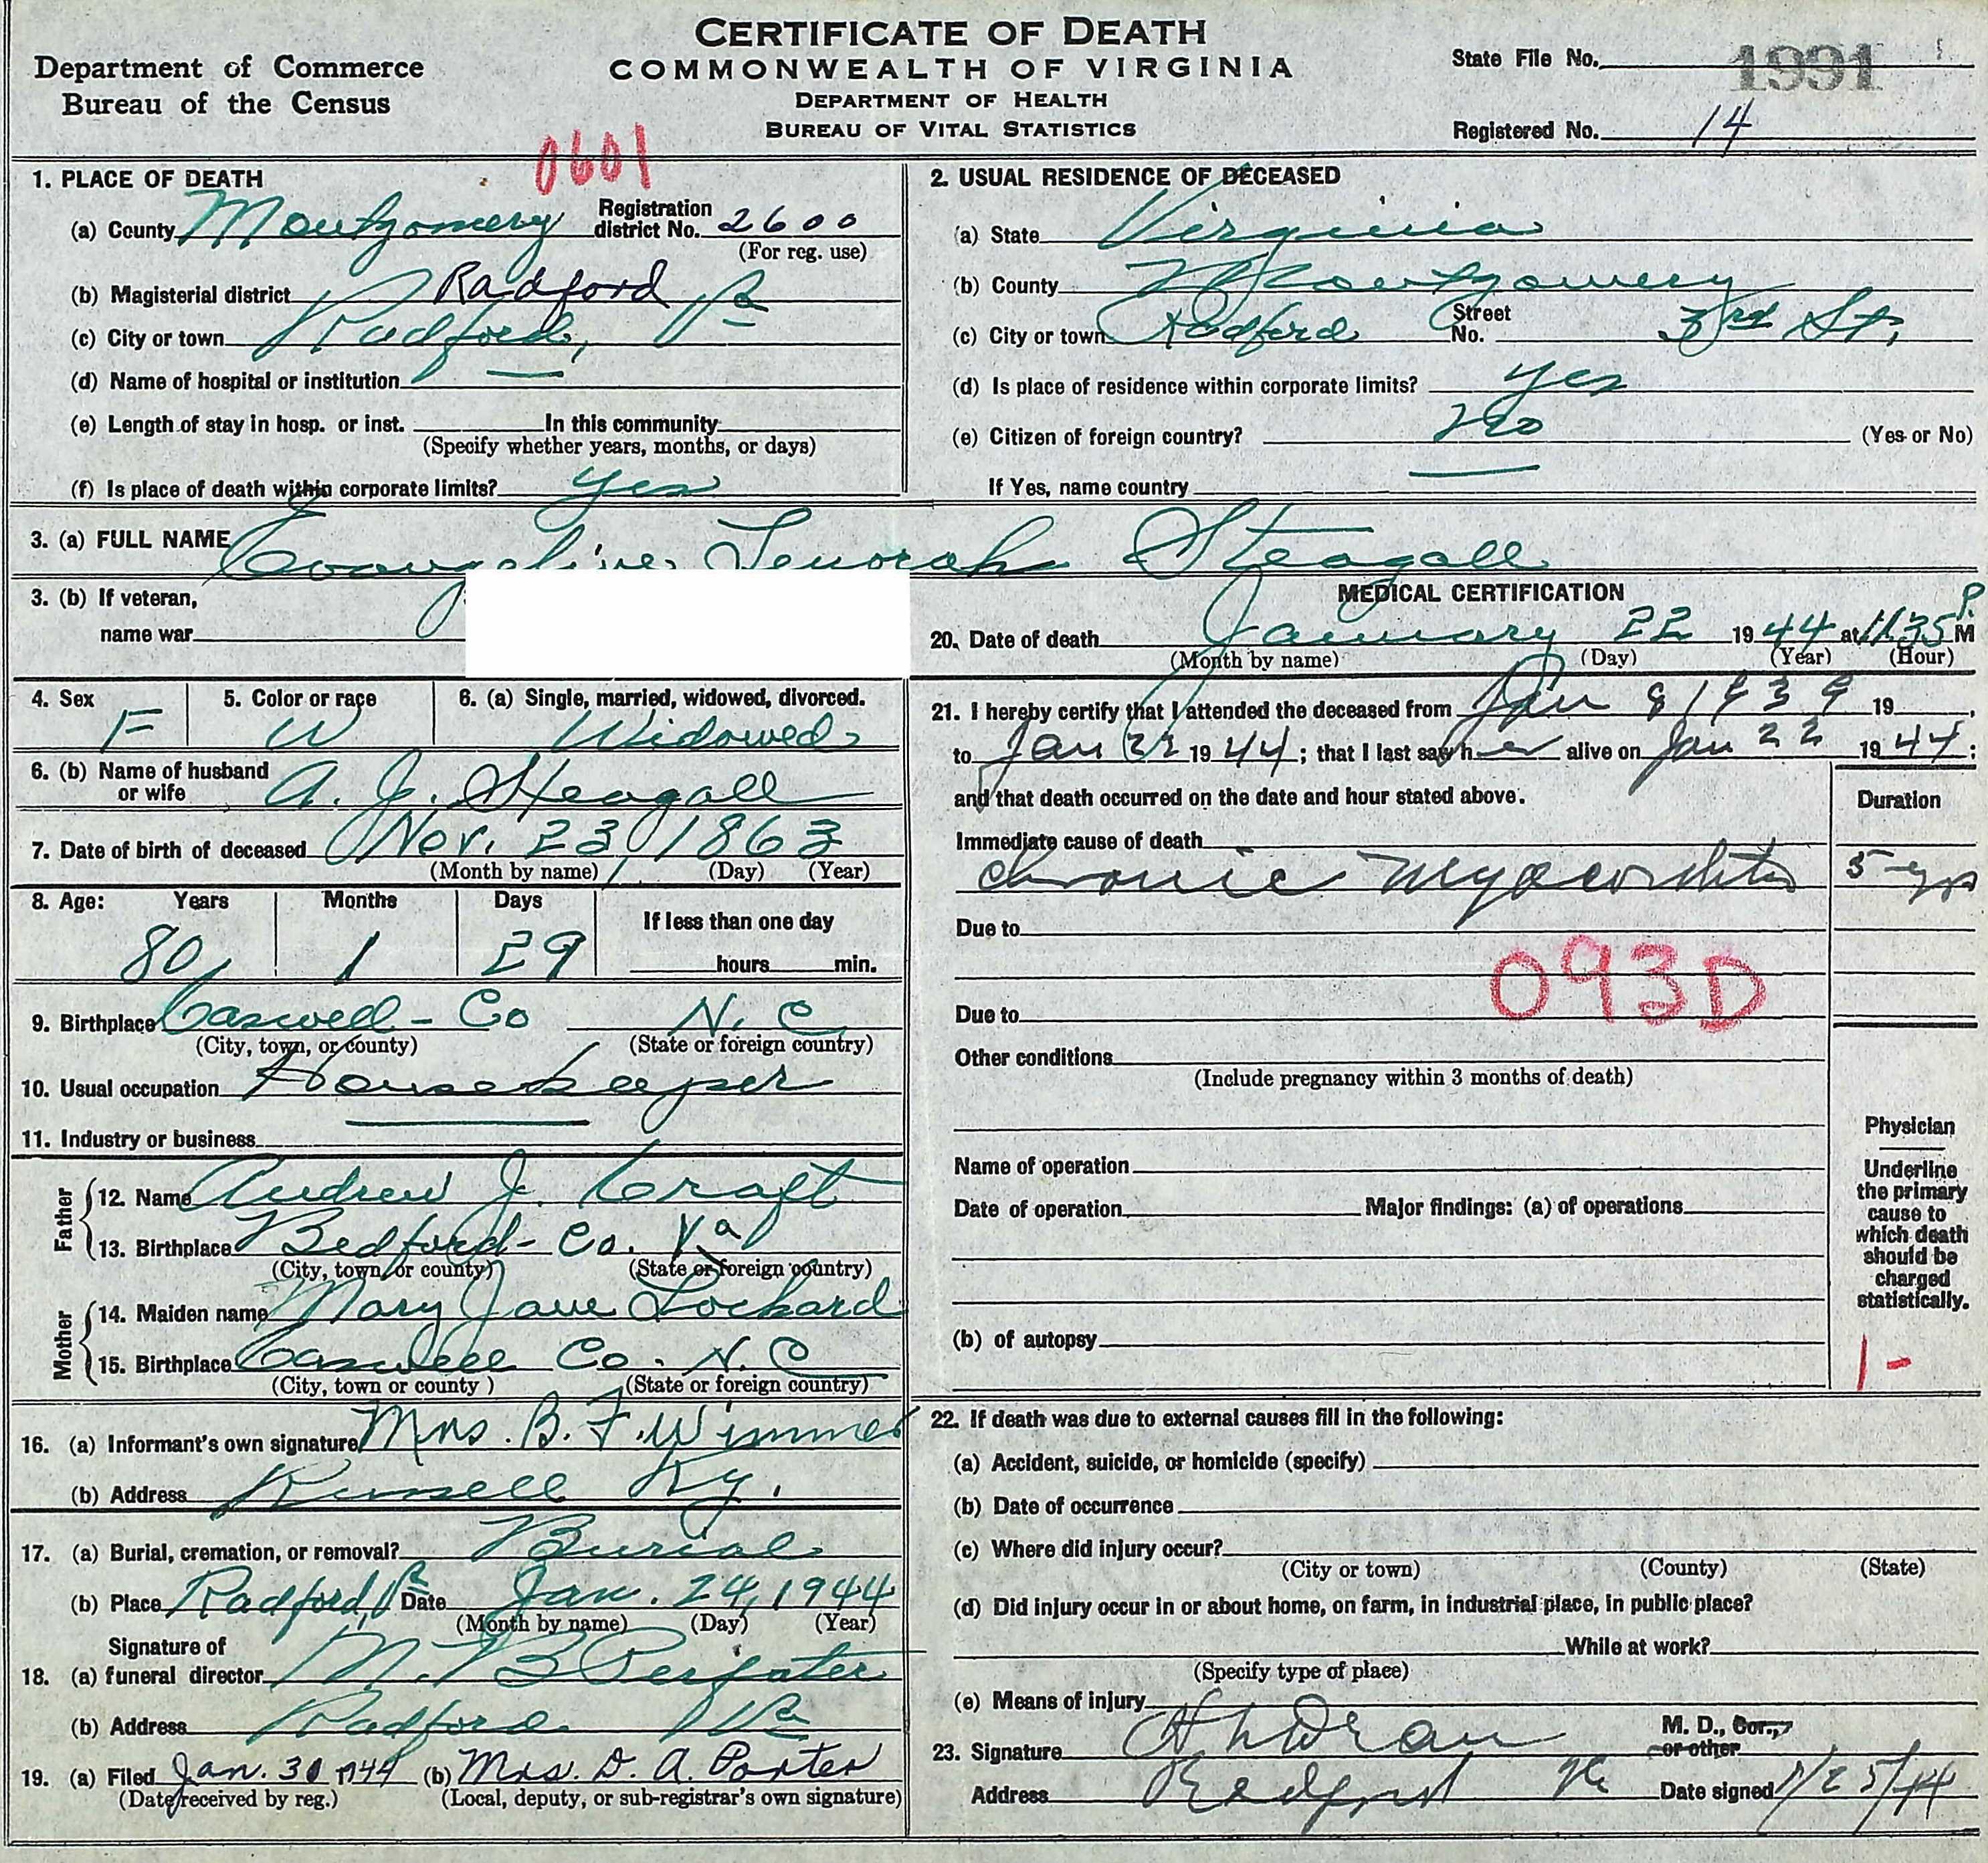 CERTIFICATE OF DEATH
COMMONWEALTH OF VIRGINIA
DEPARTMENT OF HEALTH
BUREAU OF VITAL STATISTICS
Department of Commerce
Bureau of the Census
State File No. 1991
Registered No. 14
0601
1. PLACE OF DEATH
(a) County Montgomery Registration district No. 2600
(For reg. use)
(b) Magisterial district Radford
(c) City or town Radford, Va
(d) Name of hospital or institution —
(e) Length of stay in hosp. or inst. In this community
(Specify whether years, months, or days)
(f) Is place of death within corporate limits? yes
2. USUAL RESIDENCE OF DECEASED
(a) State Virginia
(b) County Montgomery
(c) City or town Radford Street No. 3rd St.
(d) Is place of residence within corporate limits? yes
(e) Citizen of foreign country? no (Yes or No)
If Yes, name country —
3. (a) FULL NAME Evangeline Lenorah Steagall
3. (b) If veteran,
name war
4. Sex F
5. Color or race W
6. (a) Single, married, widowed, divorced. Widowed
6. (b) Name of husband or wife A. J. Steagall
7. Date of birth of deceased Nov. 23, 1863
(Month by name) (Day) (Year)
8. Age: Years Months Days If less than one day
80 1 29 hours min.
9. Birthplace Caswell - Co N. C
(City, town, or county) (State or foreign country)
10. Usual occupation Housekeeper
11. Industry or business —
Father
12. Name Andrew J. Craft
13. Birthplace Bedford - Co. Va
(City, town or county) (State or foreign country)
Mother
14. Maiden name Mary Jane Lockard
15. Birthplace Caswell Co. N. C
(City, town or county) (State or foreign country)
16. (a) Informant's own signature Mrs. B. F. Wimmer
(b) Address Russell Ky.
17. (a) Burial, cremation, or removal? Burial
(b) Place Radford, Va Date Jan. 24, 1944
(Month by name) (Day) (Year)
Signature of
18. (a) funeral director M. B.
(b) Address Radford Va
19. (a) Filed Jan. 31 1944 (b) Mrs. D. A. Porter
(Date received by reg.) (Local, deputy, or sub-registrar's own signature)
MEDICAL CERTIFICATION
20. Date of death January 22 1944 at 11:35 P. M
(Month by name) (Day) (Year) (Hour)
21. I hereby certify that I attended the deceased from Jan 9 1939 19
to Jan 22 1944; that I last saw her alive on Jan 22 1944;
and that death occurred on the date and hour stated above.
Duration
Immediate cause of death
chronic myocarditis 5 yrs
Due to
093D
Due to
Other conditions
(Include pregnancy within 3 months of death)
Name of operation
Date of operation Major findings: (a) of operations
(b) of autopsy
Physician
Underline
the primary
cause to
which death
should be
charged
statistically.
1-
22. If death was due to external causes fill in the following:
(a) Accident, suicide, or homicide (specify)
(b) Date of occurrence
(c) Where did injury occur?
(City or town) (County) (State)
(d) Did injury occur in or about home, on farm, in industrial place, in public place?
While at work?
(Specify type of place)
(e) Means of injury
23. Signature M. D., Cor., or other
Address Radford Va Date signed 1/25/44